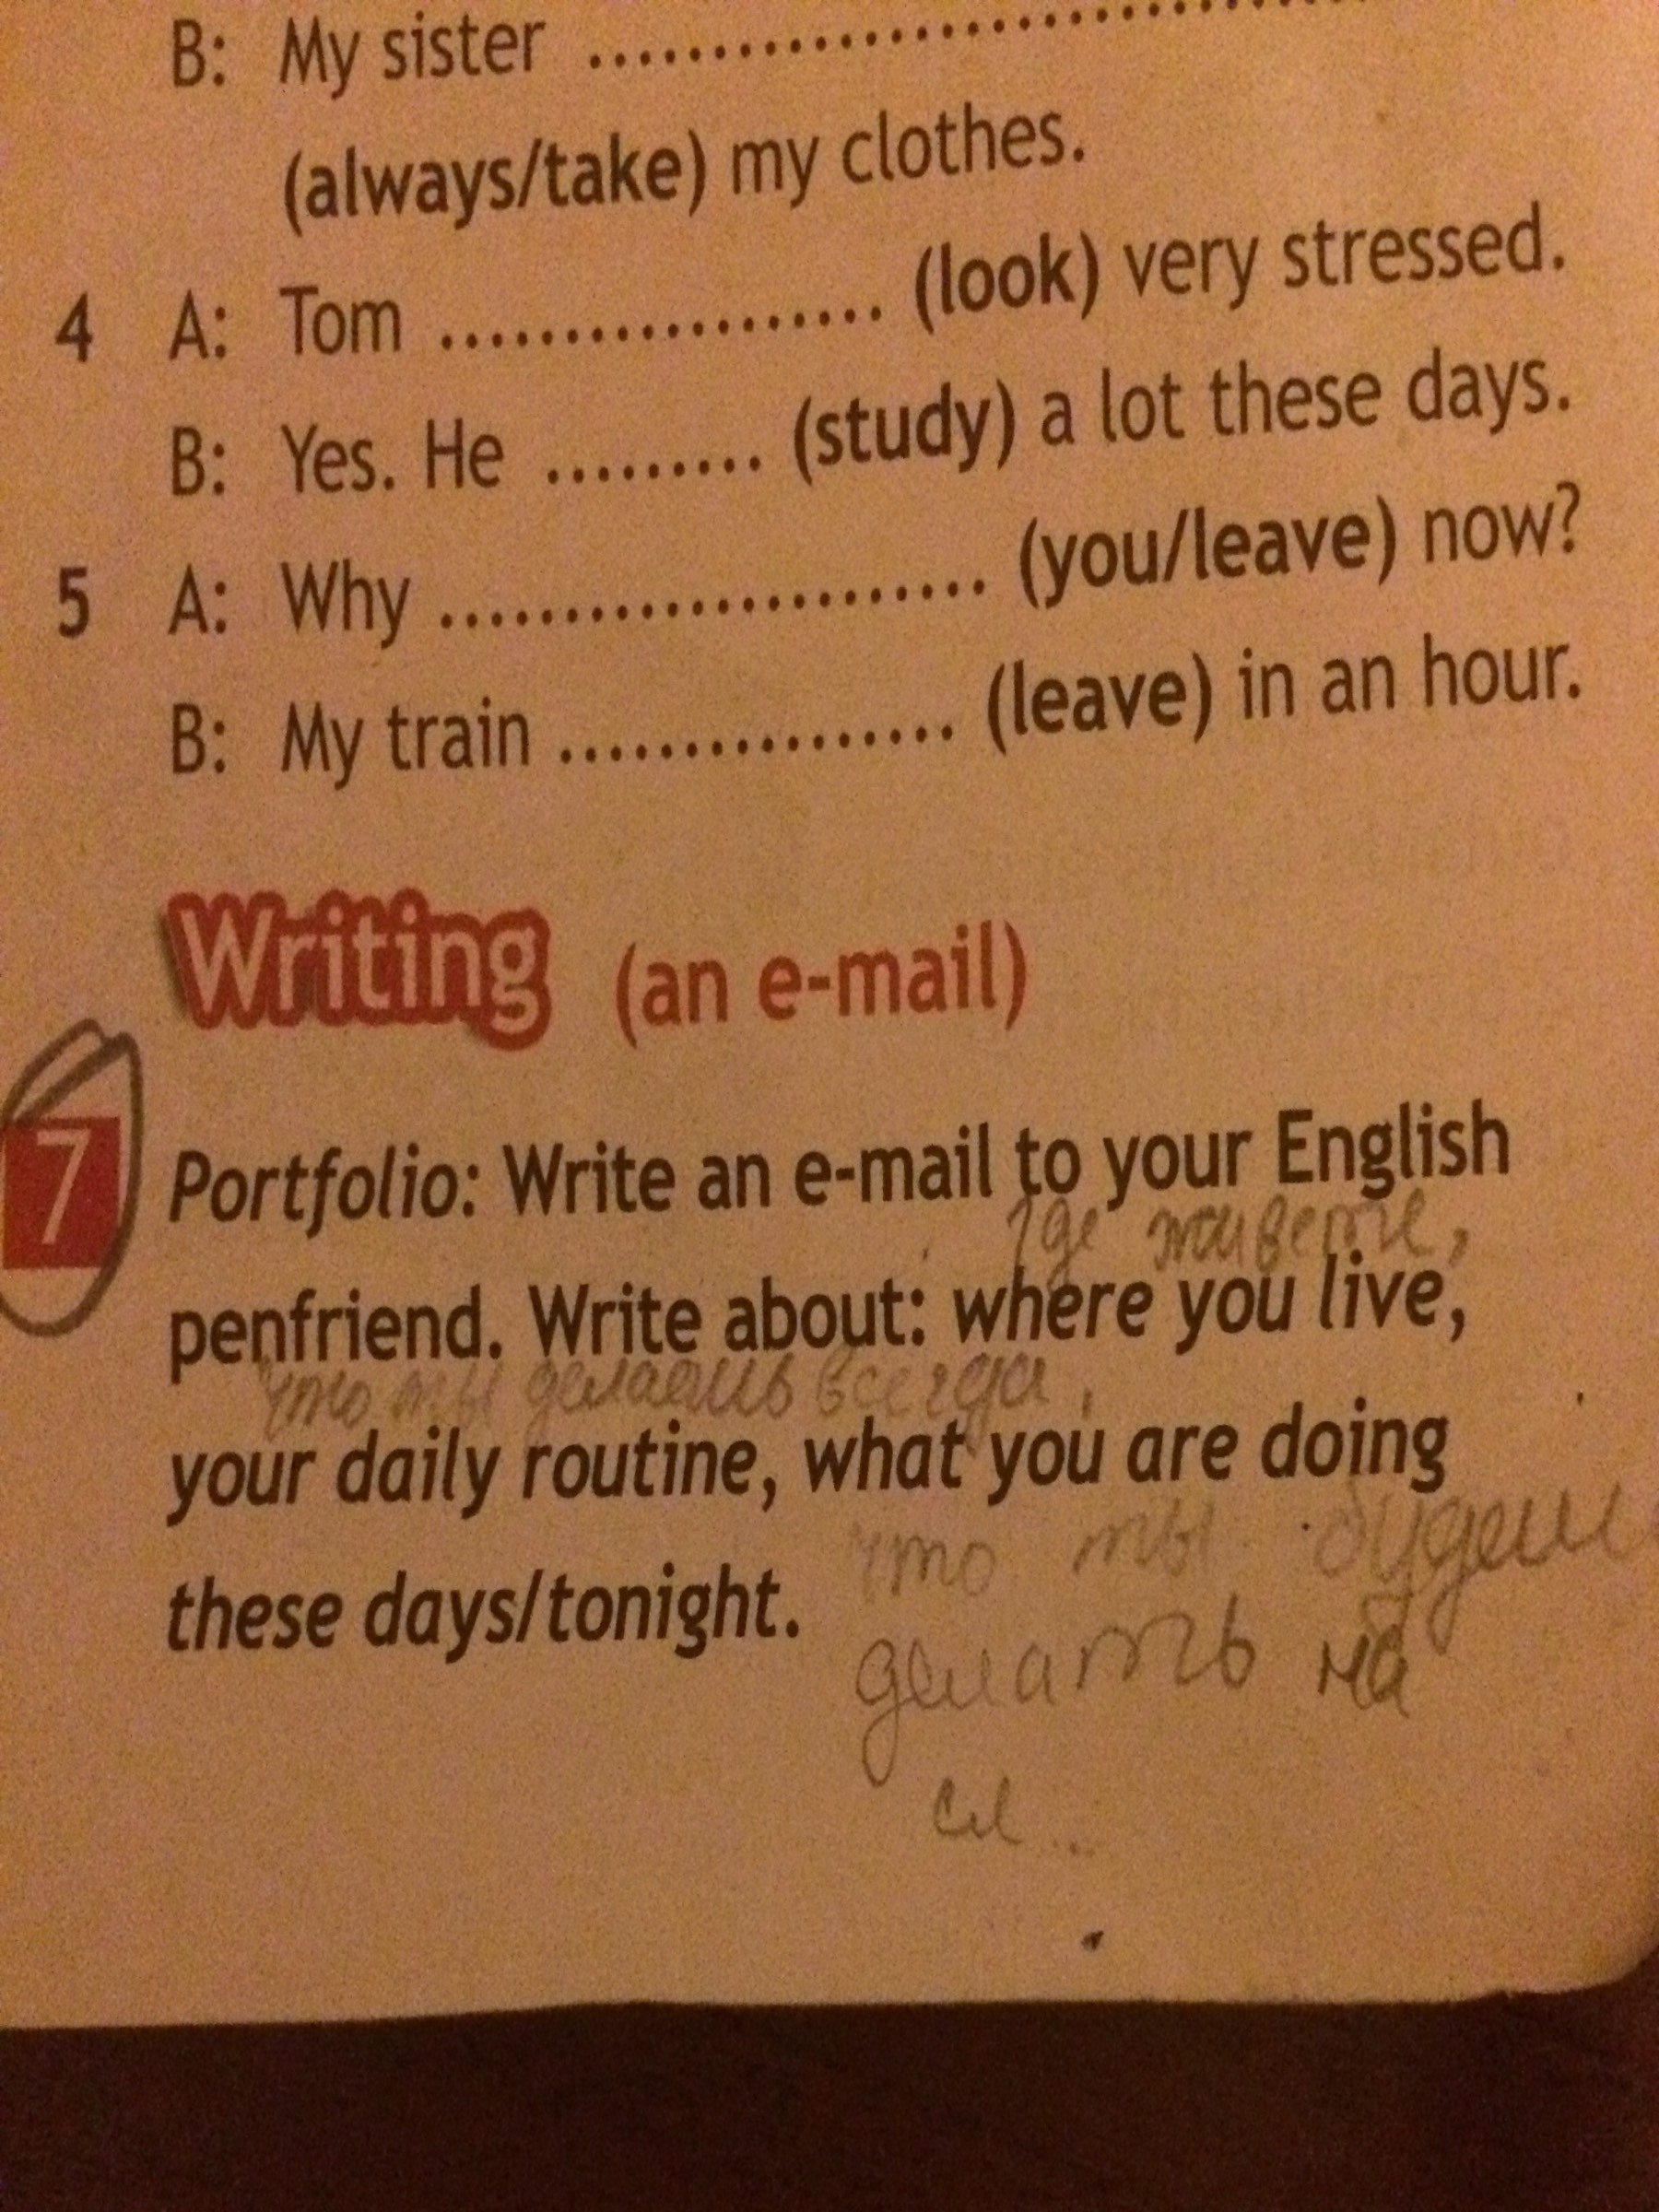 B: My sister ........................................
(always/take) my clothes.
4 A: Tom .................. (look) very stressed.
B: Yes. He ......... (study) a lot these days.
5 A: Why ...................... (you/leave) now?
B: My train ................ (leave) in an hour.
Writing (an e-mail)
7 Portfolio: Write an e-mail to your English
где живете,
penfriend. Write about: where you live,
что ты делаешь всегда,
your daily routine, what you are doing
что ты будеш
these days/tonight.
делать на